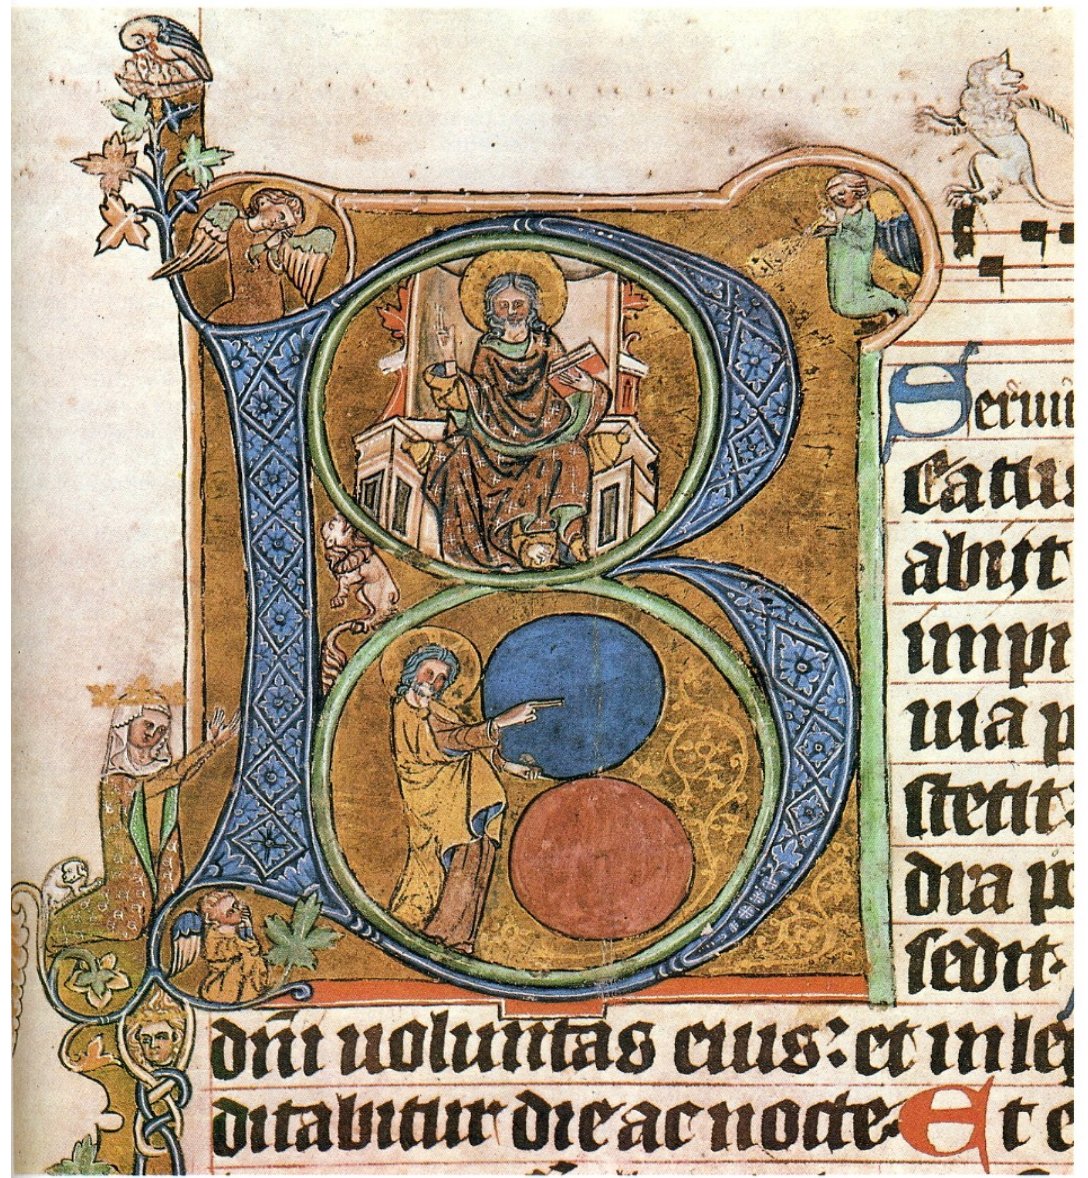 B
Serui
Eatus
abijt
impi
uia p
stetit:
dra p
sedit.
dni uoluntas eius: et in leg
ditabitur die ac nocte. Et e